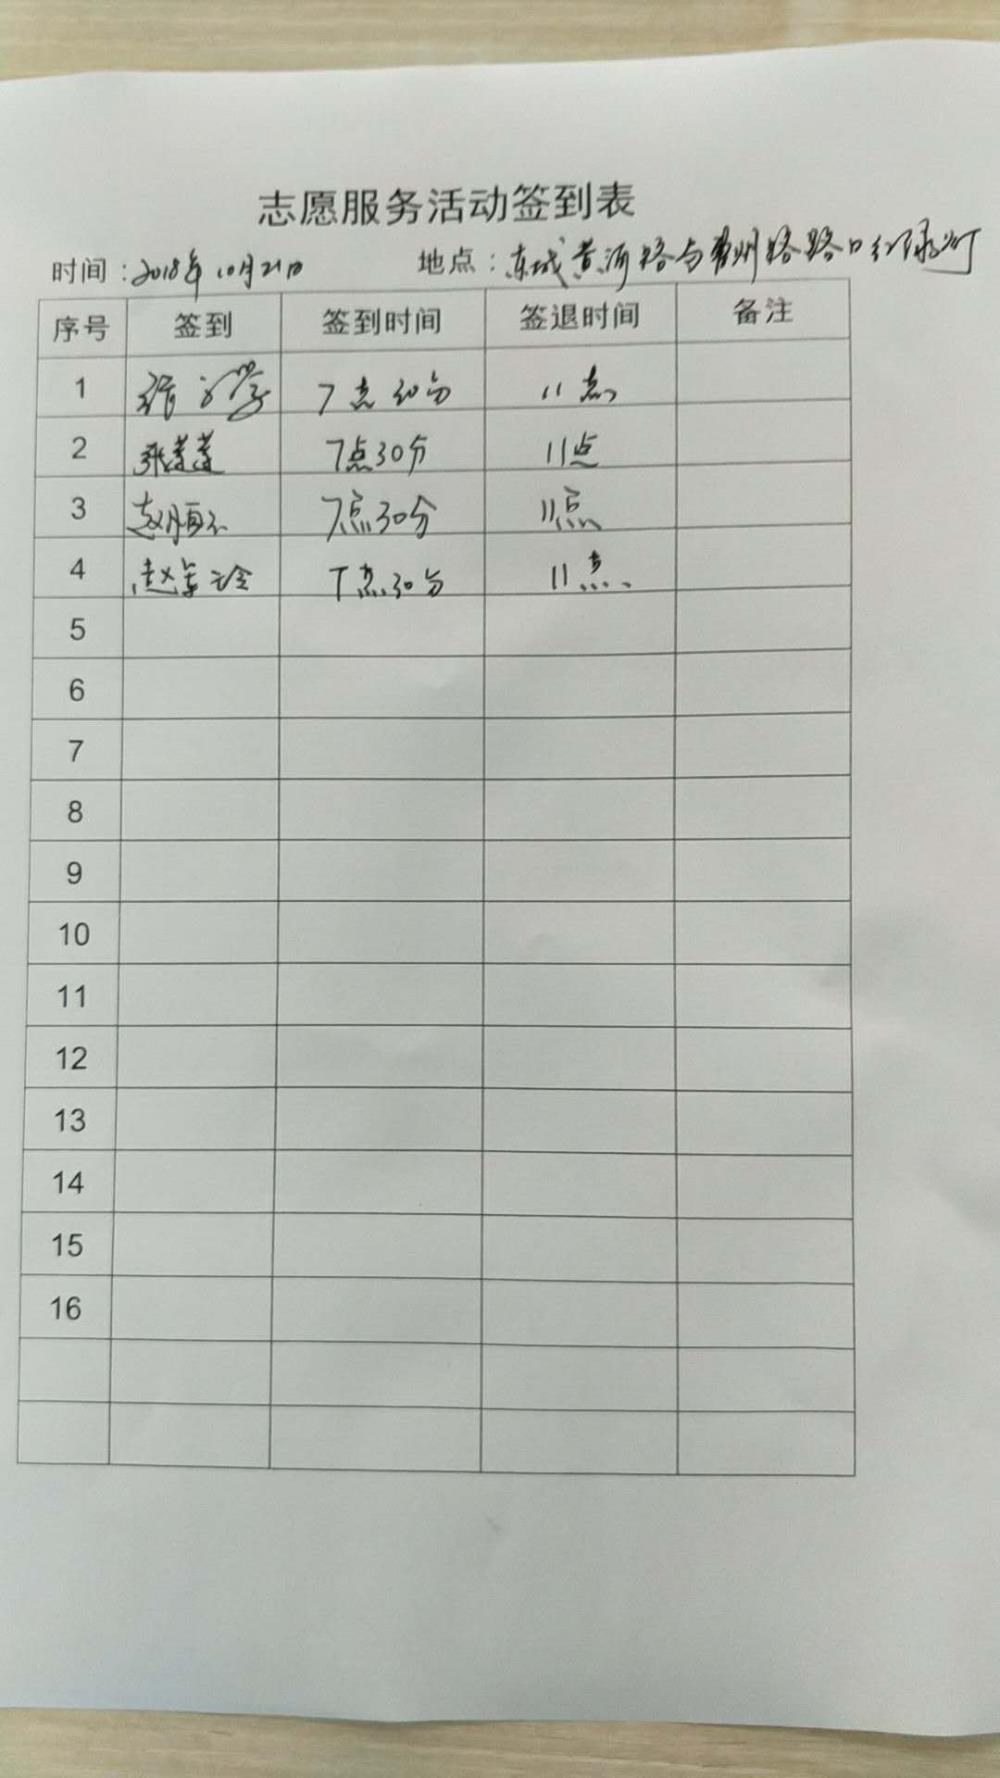 志愿服务活动签到表
时间：2018年10月21日 地点：东城黄河路与胶州路路口红绿灯
序号 签到 签到时间 签退时间 备注
1 7点30分 11点
2 张莲莲 7点30分 11点
3 赵 7点30分 11点
4 赵 7点30分 11点
5
6
7
8
9
10
11
12
13
14
15
16